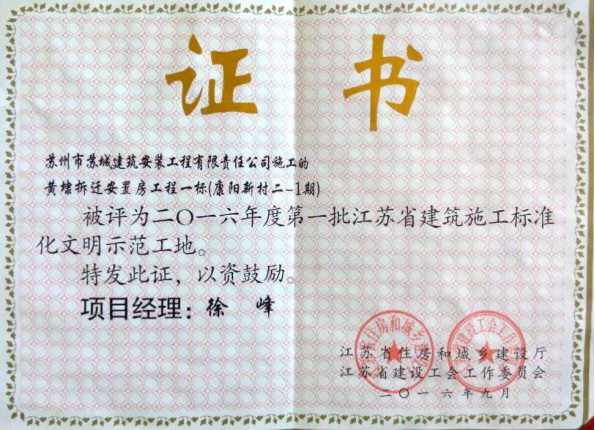 证 书
苏州市苏城建筑安装工程有限责任公司施工的
黄埭拆迁安置房工程一标(康阳新村二-1期)
被评为二〇一六年度第一批江苏省建筑施工标准
化文明示范工地。
特发此证，以资鼓励。
项目经理：徐 峰
江苏省住房和城乡建设厅
江苏省建设工会工作委员会
二〇一六年九月